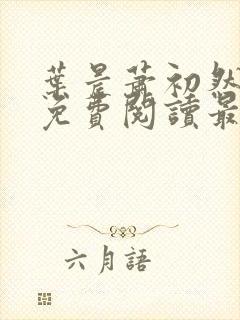 葉晨蕭初然
免費閱讀最
六月語